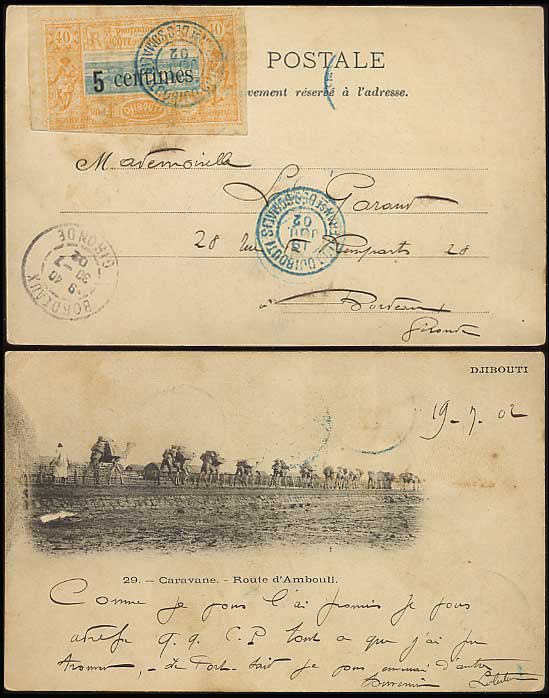 40 PROTECTORAT CÔTE 40
5 centimes
DJIBOUTI
POSTALE
vement réservé à l'adresse.
Mademoiselle
L. Garaud
28 rue Remparts 28
à Bordeaux
Gironde
DJIBOUTI
19 JUIL 02
BORDEAUX
9 40
30 7
02
GIRONDE
DJIBOUTI
19_7_02
29. — Caravane. - Route d'Ambouli.
Comme je vous l'ai promis je vous
q.q. C.P. tout ce que j'ai pu
trouver, _ de Port-Saïd je vous d'autres
Souvenir